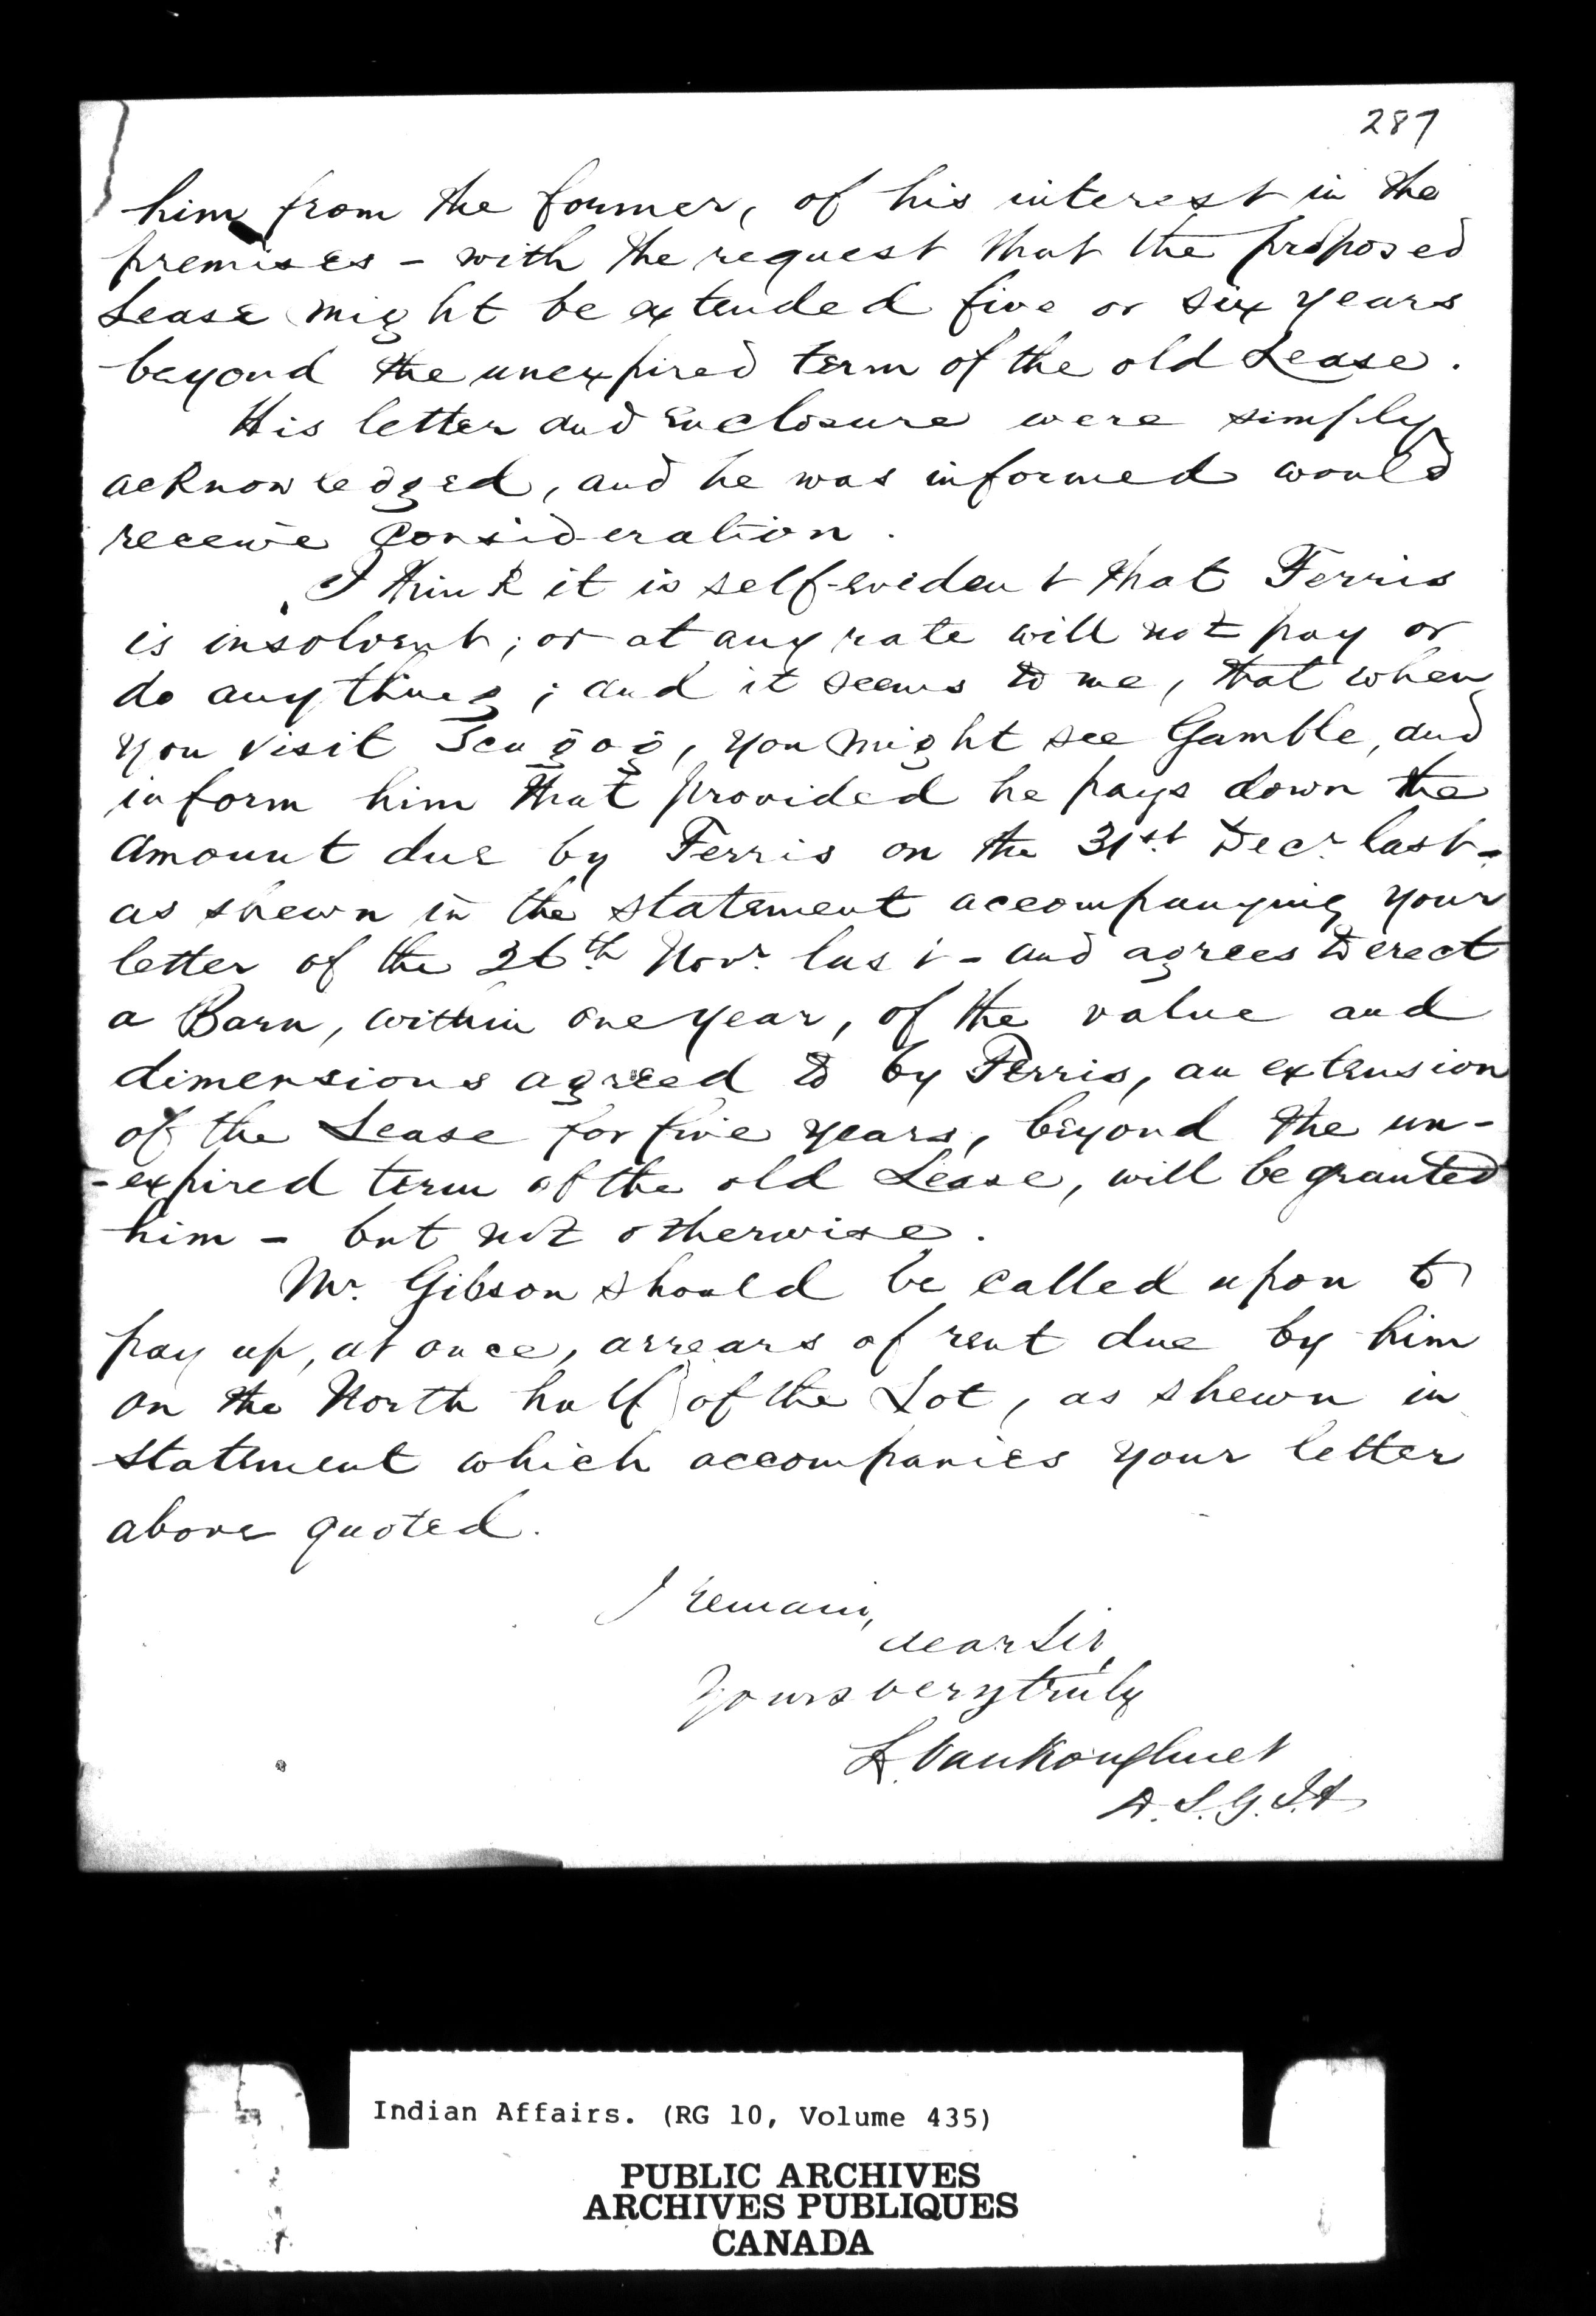 287
him from the former, of his interest in the
premises - with the request that the proposed
Lease might be extended five or six years
beyond the unexpired term of the old Lease.
His letter and Enclosure were simply
acknowledged, and he was informed would
receive Consideration.
I think it is self-evident that Ferris
is insolvent; or at any rate will not pay or
do anything; and it seems to me, that when
you visit Scugog, you might see Gamble, and
inform him that provided he pays down the
amount due by Ferris on the 31st. Decr. last -
as shewn in the statement accompanying your
letter of the 26th. Novr. last - and agrees to erect
a Barn, within one year, of the value and
dimensions agreed to by Ferris, an extension
of the Lease for five years, beyond the un-
-expired term of the old Lease, will be granted
him - but not otherwise.
Mr. Gibson should be called upon to
pay up, at once, arrears of rent due by him
on the North half of the Lot, as shewn in
statement which accompanies your letter
above quoted.
I remain,
dear Sir,
Yours very truly
L. VanKoughnet
D.S.G.I.A
Indian Affairs. (RG 10, Volume 435)
PUBLIC ARCHIVES
ARCHIVES PUBLIQUES
CANADA